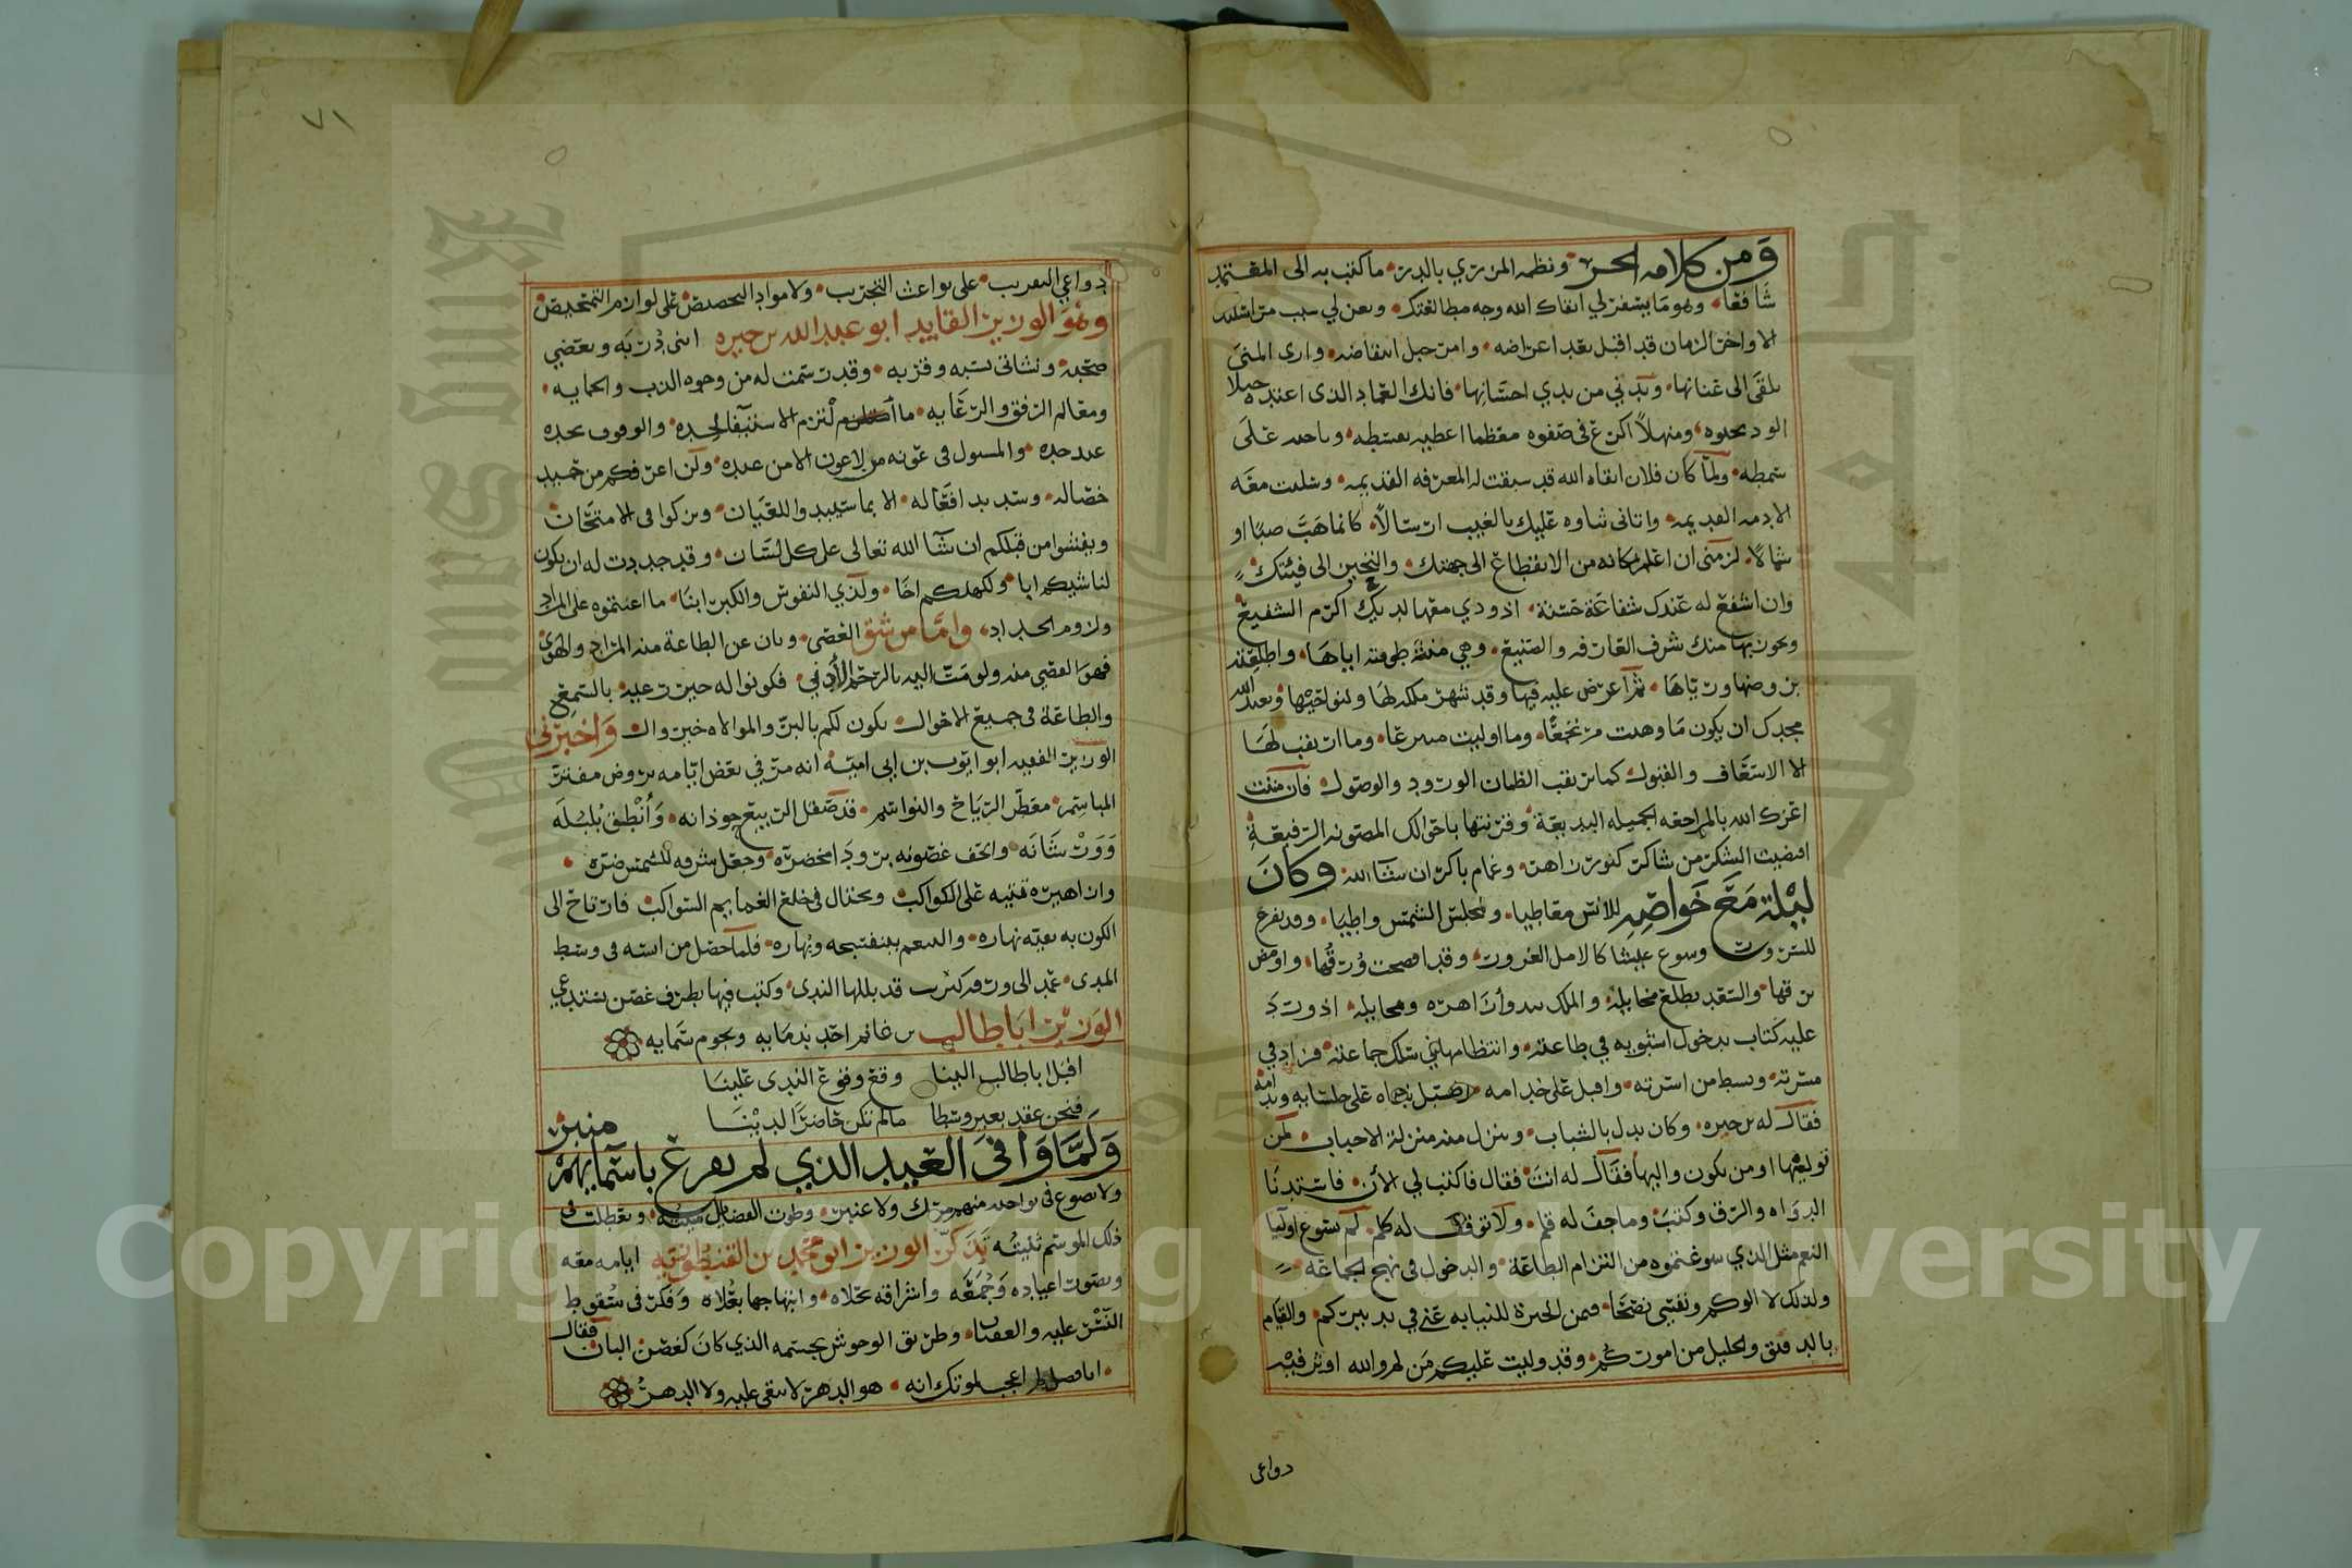 ومن كلامه الحر ونظمه المزري بالدر ما كتب به الى المعتمد
شافعا وهو مما يسفر لي ابقاك الله وجه مطالعتك ويعن لي سبب من
الا واخرّ الزمان قد اقبل بعد اعراضه وامر حبل انتقاضه وارى المنى
تلقى الى عنانها وتدنى من يدي احسانها فانك العماد الذي اعتده جبلا
الوذ بحدوه ومنهلا اكرع في صفوه معظما اعطيه بقسطه وباحد على
شمطه ولما كان فلان ابقاه الله قد سبقت له المعرفة القديمة وسلفت معه
الاذمة القديمة واتانى ثناوه عليك بالغيب ارسالا كانما هبت صبا او
شمالا لزمنى ان اعلم مكانه من الانقطاع الى جهتك والتحيز الى فيئتك
وان اشفع له عندك شفاعة حسنة اذ ودي معها لديك اكرم الشفيع
ويحوز بها منك شرف العارفة والصنيع وهي منية طوقته اياها واطلعته
بروضها ورباها ثم اعرض عليه فيها وقد شهر ملكه لها ولنواحيها ويعيذ الله
مجدك ان يكون ما وهبت مرتجعا وما اوليت منتزعا وما ارتقب لها
الا الاسعاف والقبول كما يرتقب الظمان الورود والوصول فان مننت
اعزك الله بالمراجعة الجميلة البديعة وقرنتها باحوالك المصونة الرفيعة
اقتضيت الشكر من شاكر كنور زاهر وغمام باكر ان شاء الله وكان
ليلة مع خواصه للانس معاطيا ولمجلس الشمس واطيا وقد تفرغ
للسرور وسوغ عيشا كالامل الغرور وقد افصحت ورقها واومض
برقها والسعد يطلع مخايله والملك يبدو زاهره ومخايله اذ ورد
عليه كتاب بدخول اشبونه في طاعته وانتظامها في سلك جماعته فزاد في
مسرته وبسط من اسرته واقبل على خدامه على جلسايه وندامه
فقال له بن خيره وكان يدل بالشباب وينزل منه منزلة الاحباب لمن
توليها او من يكون واليها فقال له انت فقال فاكتب لي الان فاستدنا
الدواه والرق وكتب وما جف له قلم ولا توقف له كلم لم يسوغ اوليا
النعم مثل الذي سوغتموه من التزام الطاعة والدخول في نهج الجماعة
ولذلك لا الوكم ونفسي نصحا فيمن اتخيره للنيابة عني في تدبيركم والقيام
بالدقيق والجليل من اموركم وقد وليت عليكم من لم والله اوثر فيه
دواعي
٧١
دواعي التقريب على بواعث التجريب ولا مواد التحصيص على لوازم التمحيص
وهو الوزير القايد ابو عبد الله بن خيره ابنى دربه وبعضي
صحبه ونشاتي نسبه وقربه وقد رسمت له من وجوه الذب والحمايه
ومعالم الرفق والرعايه ما التزم الاستيفا لحده والوقوف بحده
عند حده والمسول في عونه من لا عون الا من عنده ولن اعرفكم من حميد
خصاله وسديد افعاله الا بما سيبدو للعيان ويزكوا في الامتحان
ويفشوا من قبلكم ان شا الله تعالى على كل لسان وقد حددت له ان يكون
لناشيكم ابا ولكهلكم اخا ولذي النفوس والكبر ابنا ما اعنتموه على المراد
ولزوم الجداد واما من شق العصى وبان عن الطاعة منه المراد والهوى
فهو القصي منه ولو مت اليه بالرحم الادنى فكونوا له خير رعيه بالسمع
والطاعة في جميع الاحوال يكون لكم بالبر والموالاه خير وال واخبرني
الوزير الفقيه ابو ايوب بن ابي اميه انه مر في بعض ايامه بروض مفتر
المباسم معطر الرياح والنواسم قد صقل الربيع جوذانه وانطق بلبله
وورشانه والحف غصونه برودا مخضره وجعل شرفه للشمس ضره
وازاهيره تتيه على الكواكب وتختال في خلع الغمايم السواكب فارتاح الى
الكون به بقية نهاره والتنعم ببنفسجه وبهاره فلما حصل من انسه في وسط
المدى عمد الى ورقة كرنب قد بللها الندى وكتب فيها بطرف غصن يستدعي
الوزير ابا طالب بن غانم احد ندمايه ونجوم سمايه
اقبل ابا طالب الينا وقع وقوع الندى علينا
فنحن عقد بغير وسطا ما لم تكن حاضرا لدينا
منبر
ولما وافى العيد الذي لم يقرع باسمايهم
ولا يصوع في نواحيه منهم مسك ولا عنبر وطويت الفضايل وتعطلت في
ذلك الموسم ثنيته تذكر الوزير ابو محمد بن القبطورنيه ايامه معه
وتصور اعياده وجمعه واشراقه بحلاه وابتهاجها بعلاه وفكر في سقوط
النسر عليه والعقاب وطرق الوحوش بجسمه الذي كان كغصن البان فقال
هو الدهر لا يبقى عليه ولا الدهر